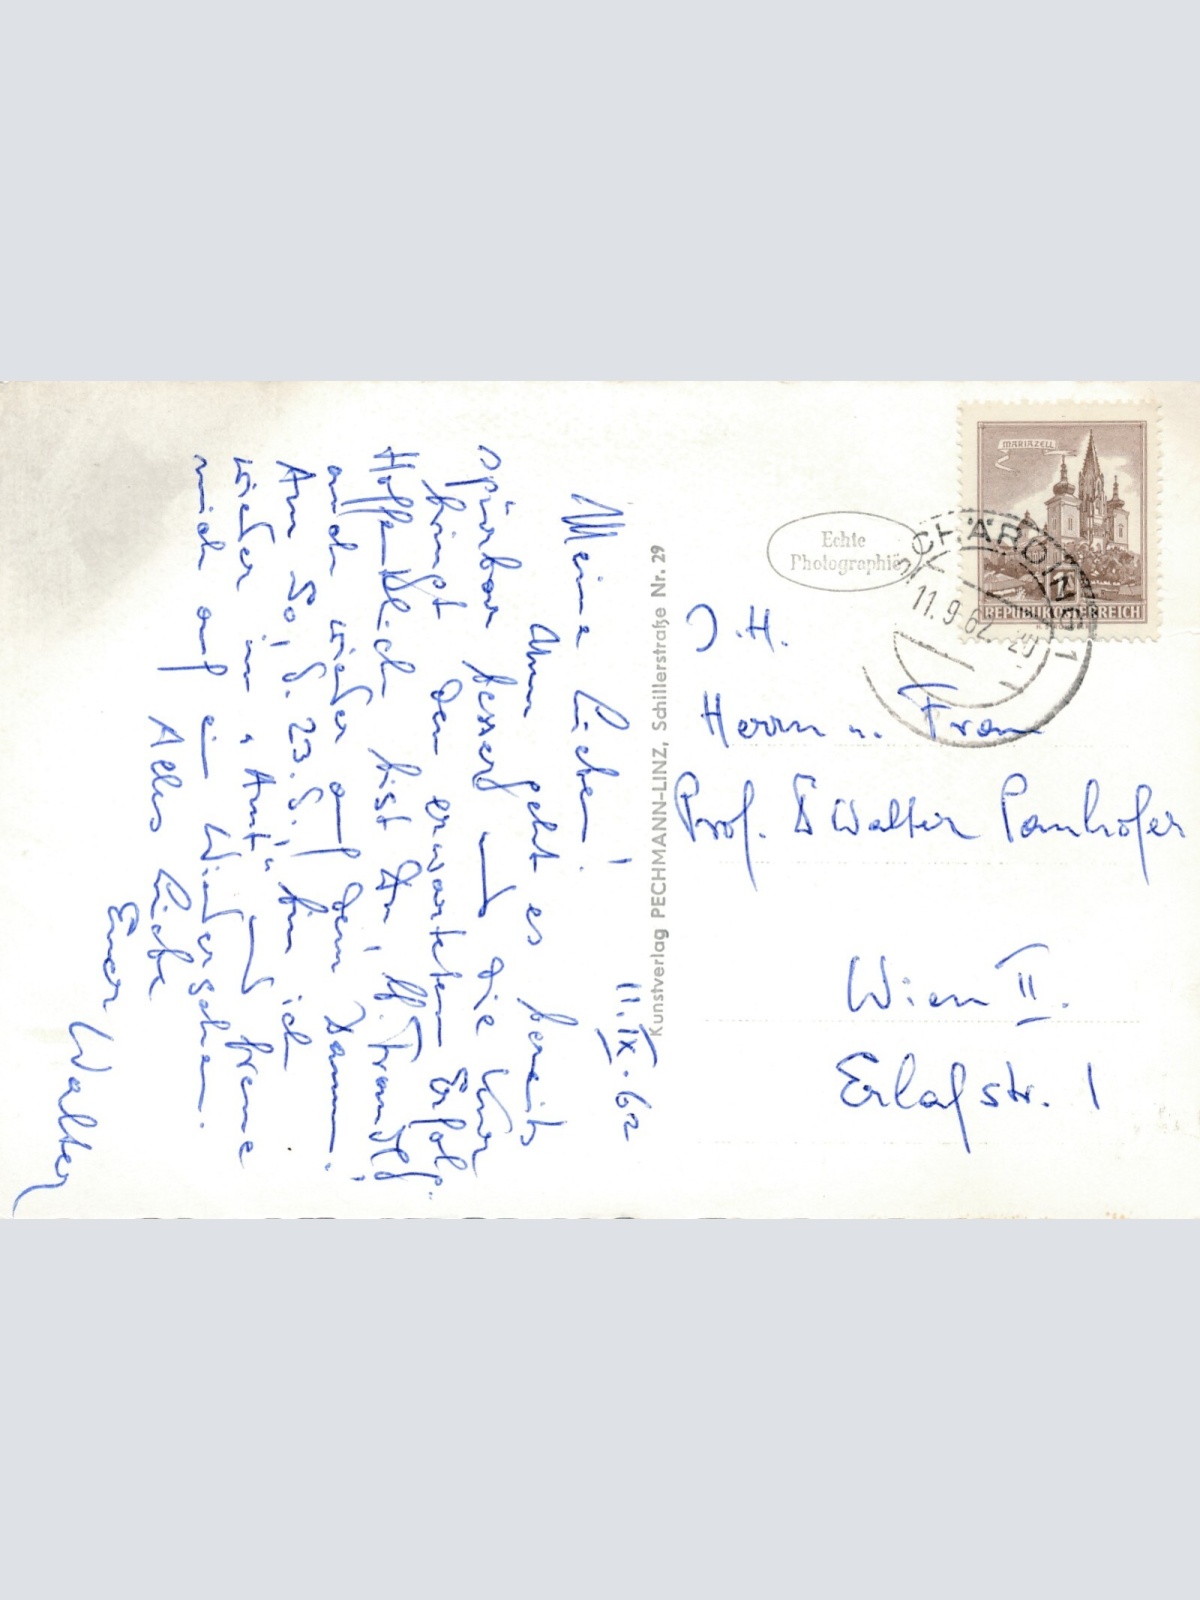 11.IX.62
Meine Lieben!
geht es bereits
spürbar besser und die Kur
bringt den erwarteten Erfolg.
Hoffentlich bist Du, lb. Traudl,
auch wieder auf dem Damm.
Am So, d. 23. d., bin ich
wieder im "Amt" und freue
mich auf ein Wiedersehen.
Alles Liebe
Euer Walter
Kunstverlag PECHMANN-LINZ, Schillerstraße Nr. 29
Echte
Photographie
MARIAZELL
1
REPUBLIK ÖSTERREICH
SCHÄRDING 1
11.9.62
20
J.H.
Herrn u. Frau
Prof. Dr Walter Panhofer
Wien II.
Erlafstr. 1